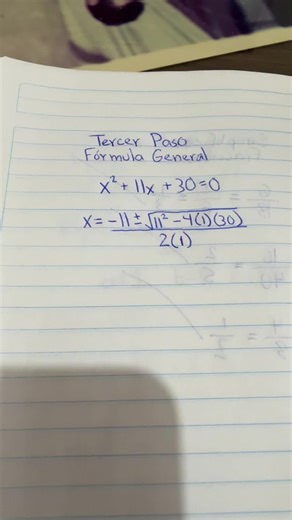 Tercer Paso
Fórmula General
x² + 11x + 30 = 0
x = -11 ± √11² - 4(1)(30)
2(1)